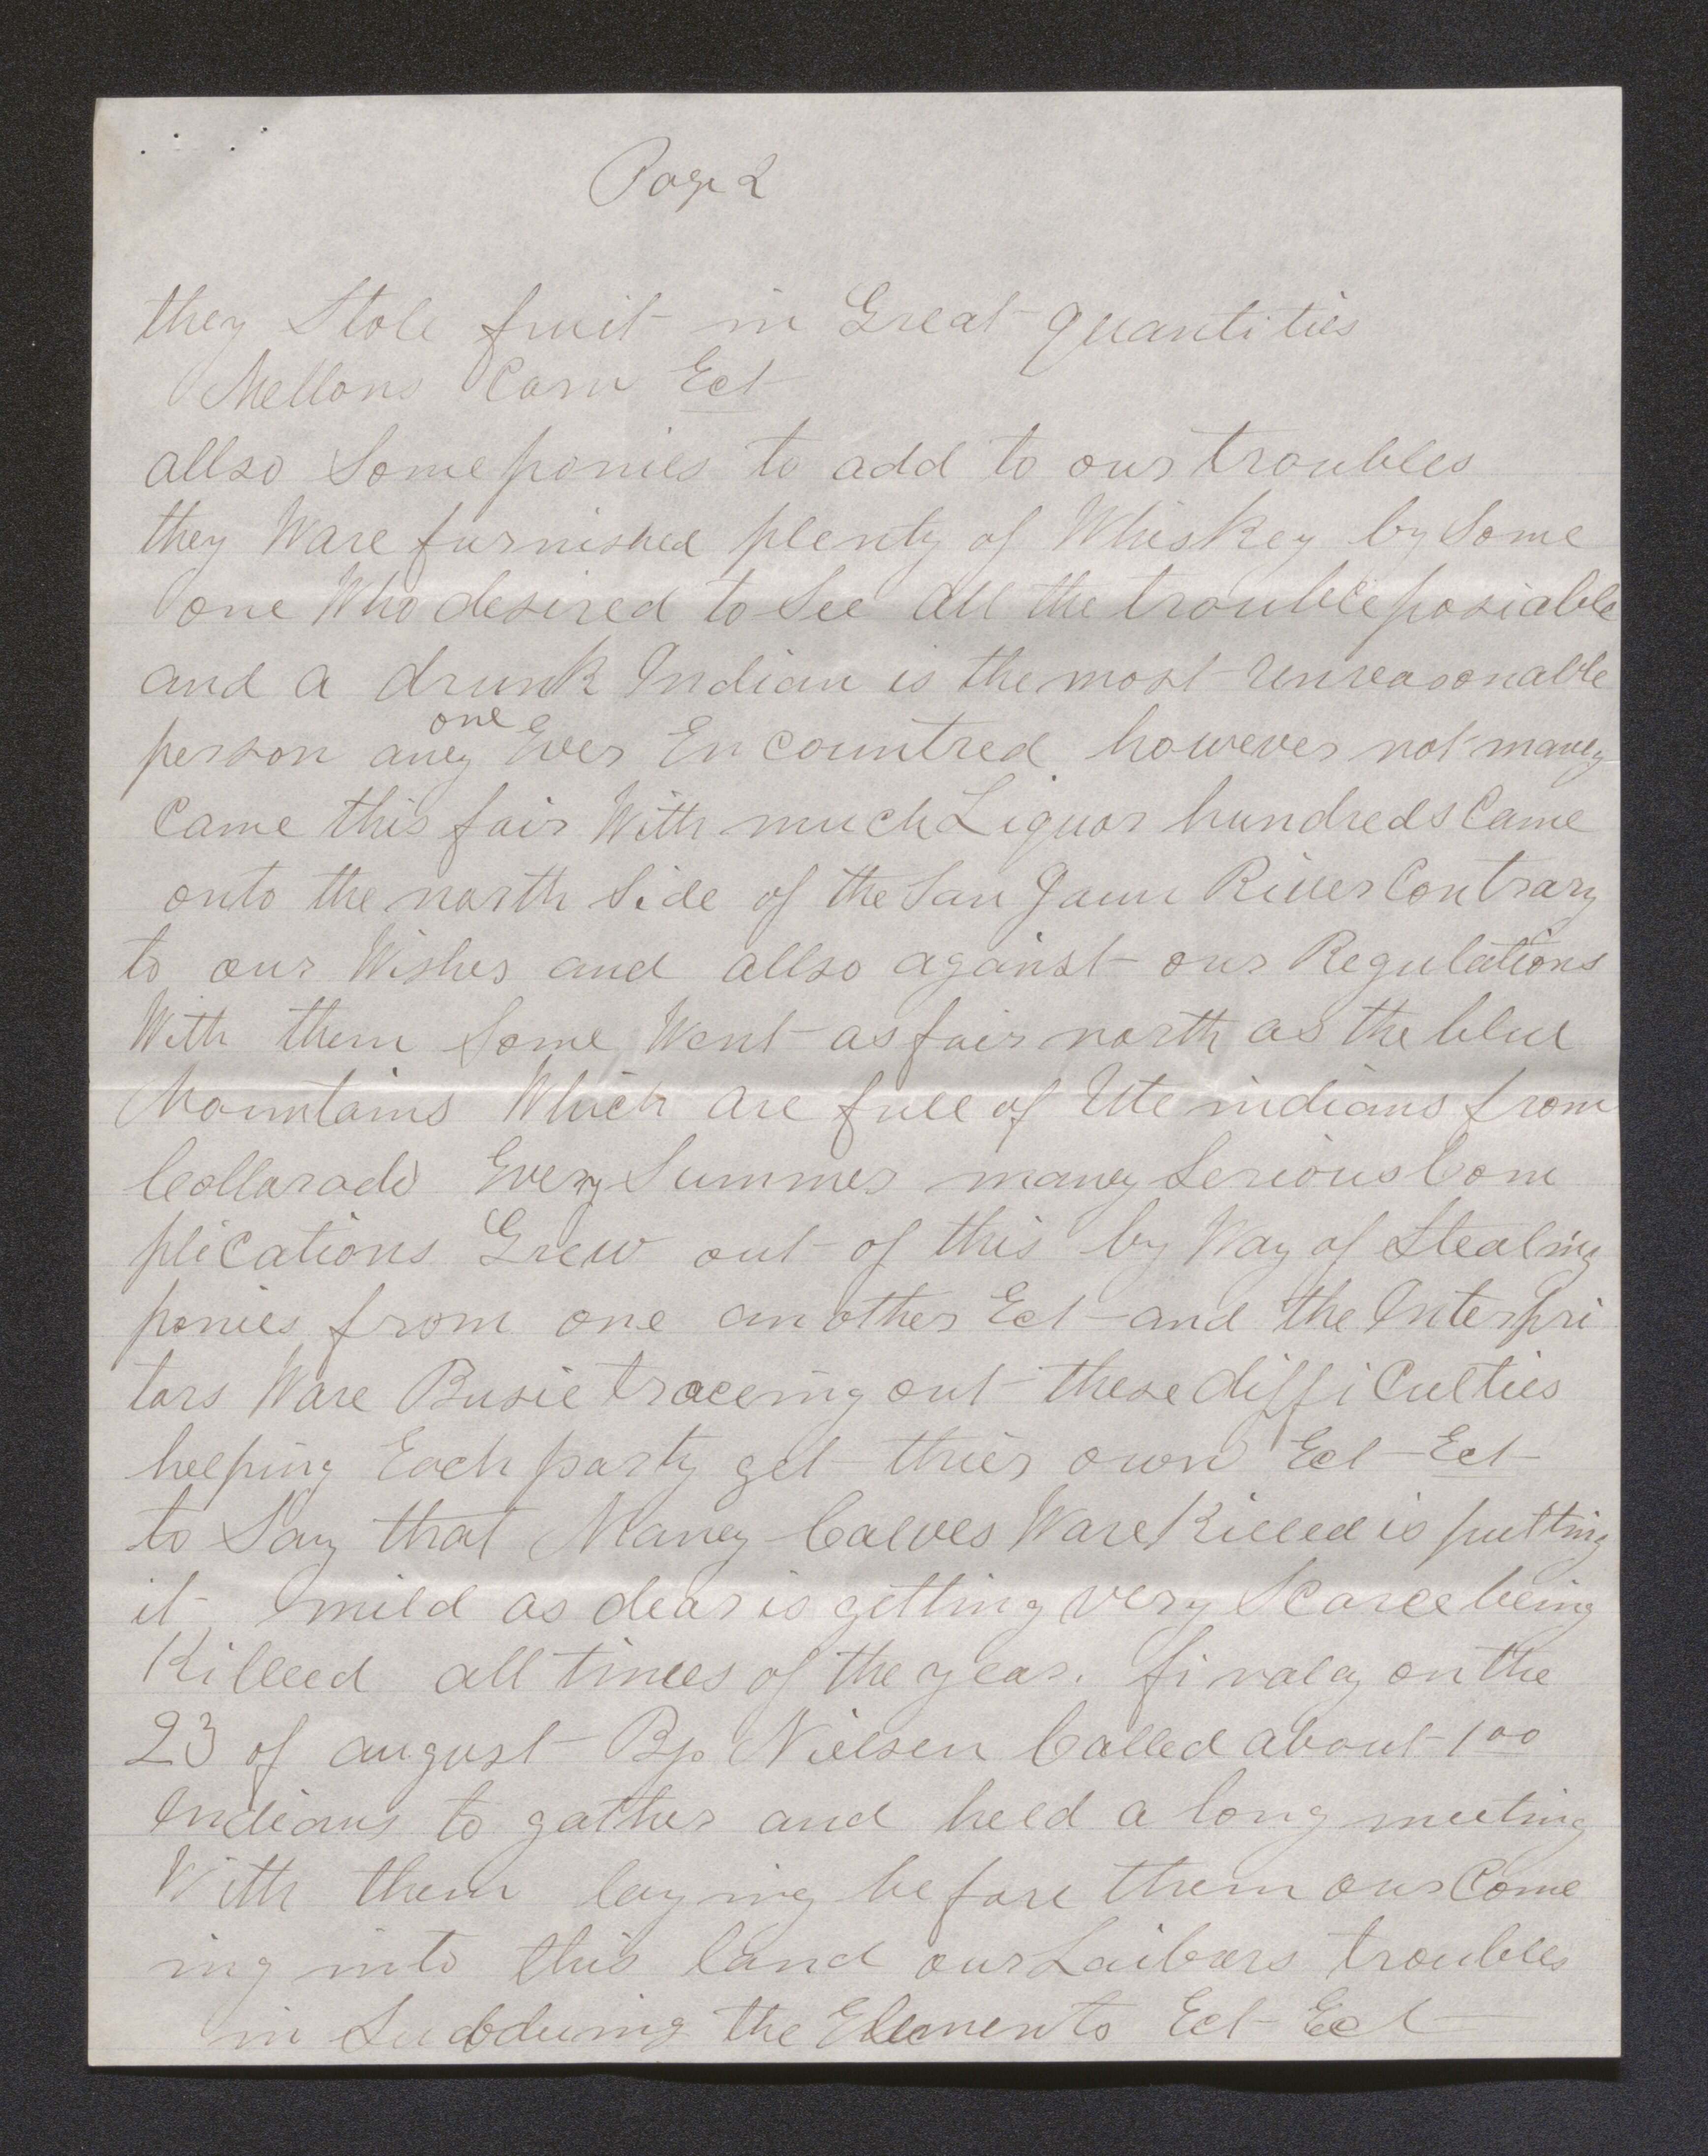 Page 2
they Stole fruit in Great quantities
Mellons Corn Ect
allso Some ponies to add to our troubles
they Ware furnished plenty of Whiskey by Some
one Who desired to See All the trouble posiable
and a drunk Indian is the most unreasonable
person aney one Ever Encountred however not maney
Came this fair With much Liquor hundreds Came
onto the north Side of the San Jaun River Contrary
to our Wishes and allso against our Regulations
With them Some Went as fair north as the blue
Mountains Which are full of Ute indians from
Collarado Every Summer maney Serious Com
plications Grew out of this by Way of Stealing
ponies from one another Ect and the Interpri
tors Ware Busie traceing out these difficulties
helping Each party get thier own Ect Ect
to Say that Maney Calves Ware Killed is putting
it mild as dear is getting very Scarce being
Killed all times of the year. finaly on the
23 of august Bp Nielsen Called about 100
Indians to gather and held a long meeting
With them laying before them our Come
ing into this land our Laibors troubles
in Subdueing the Elements Ect Ect